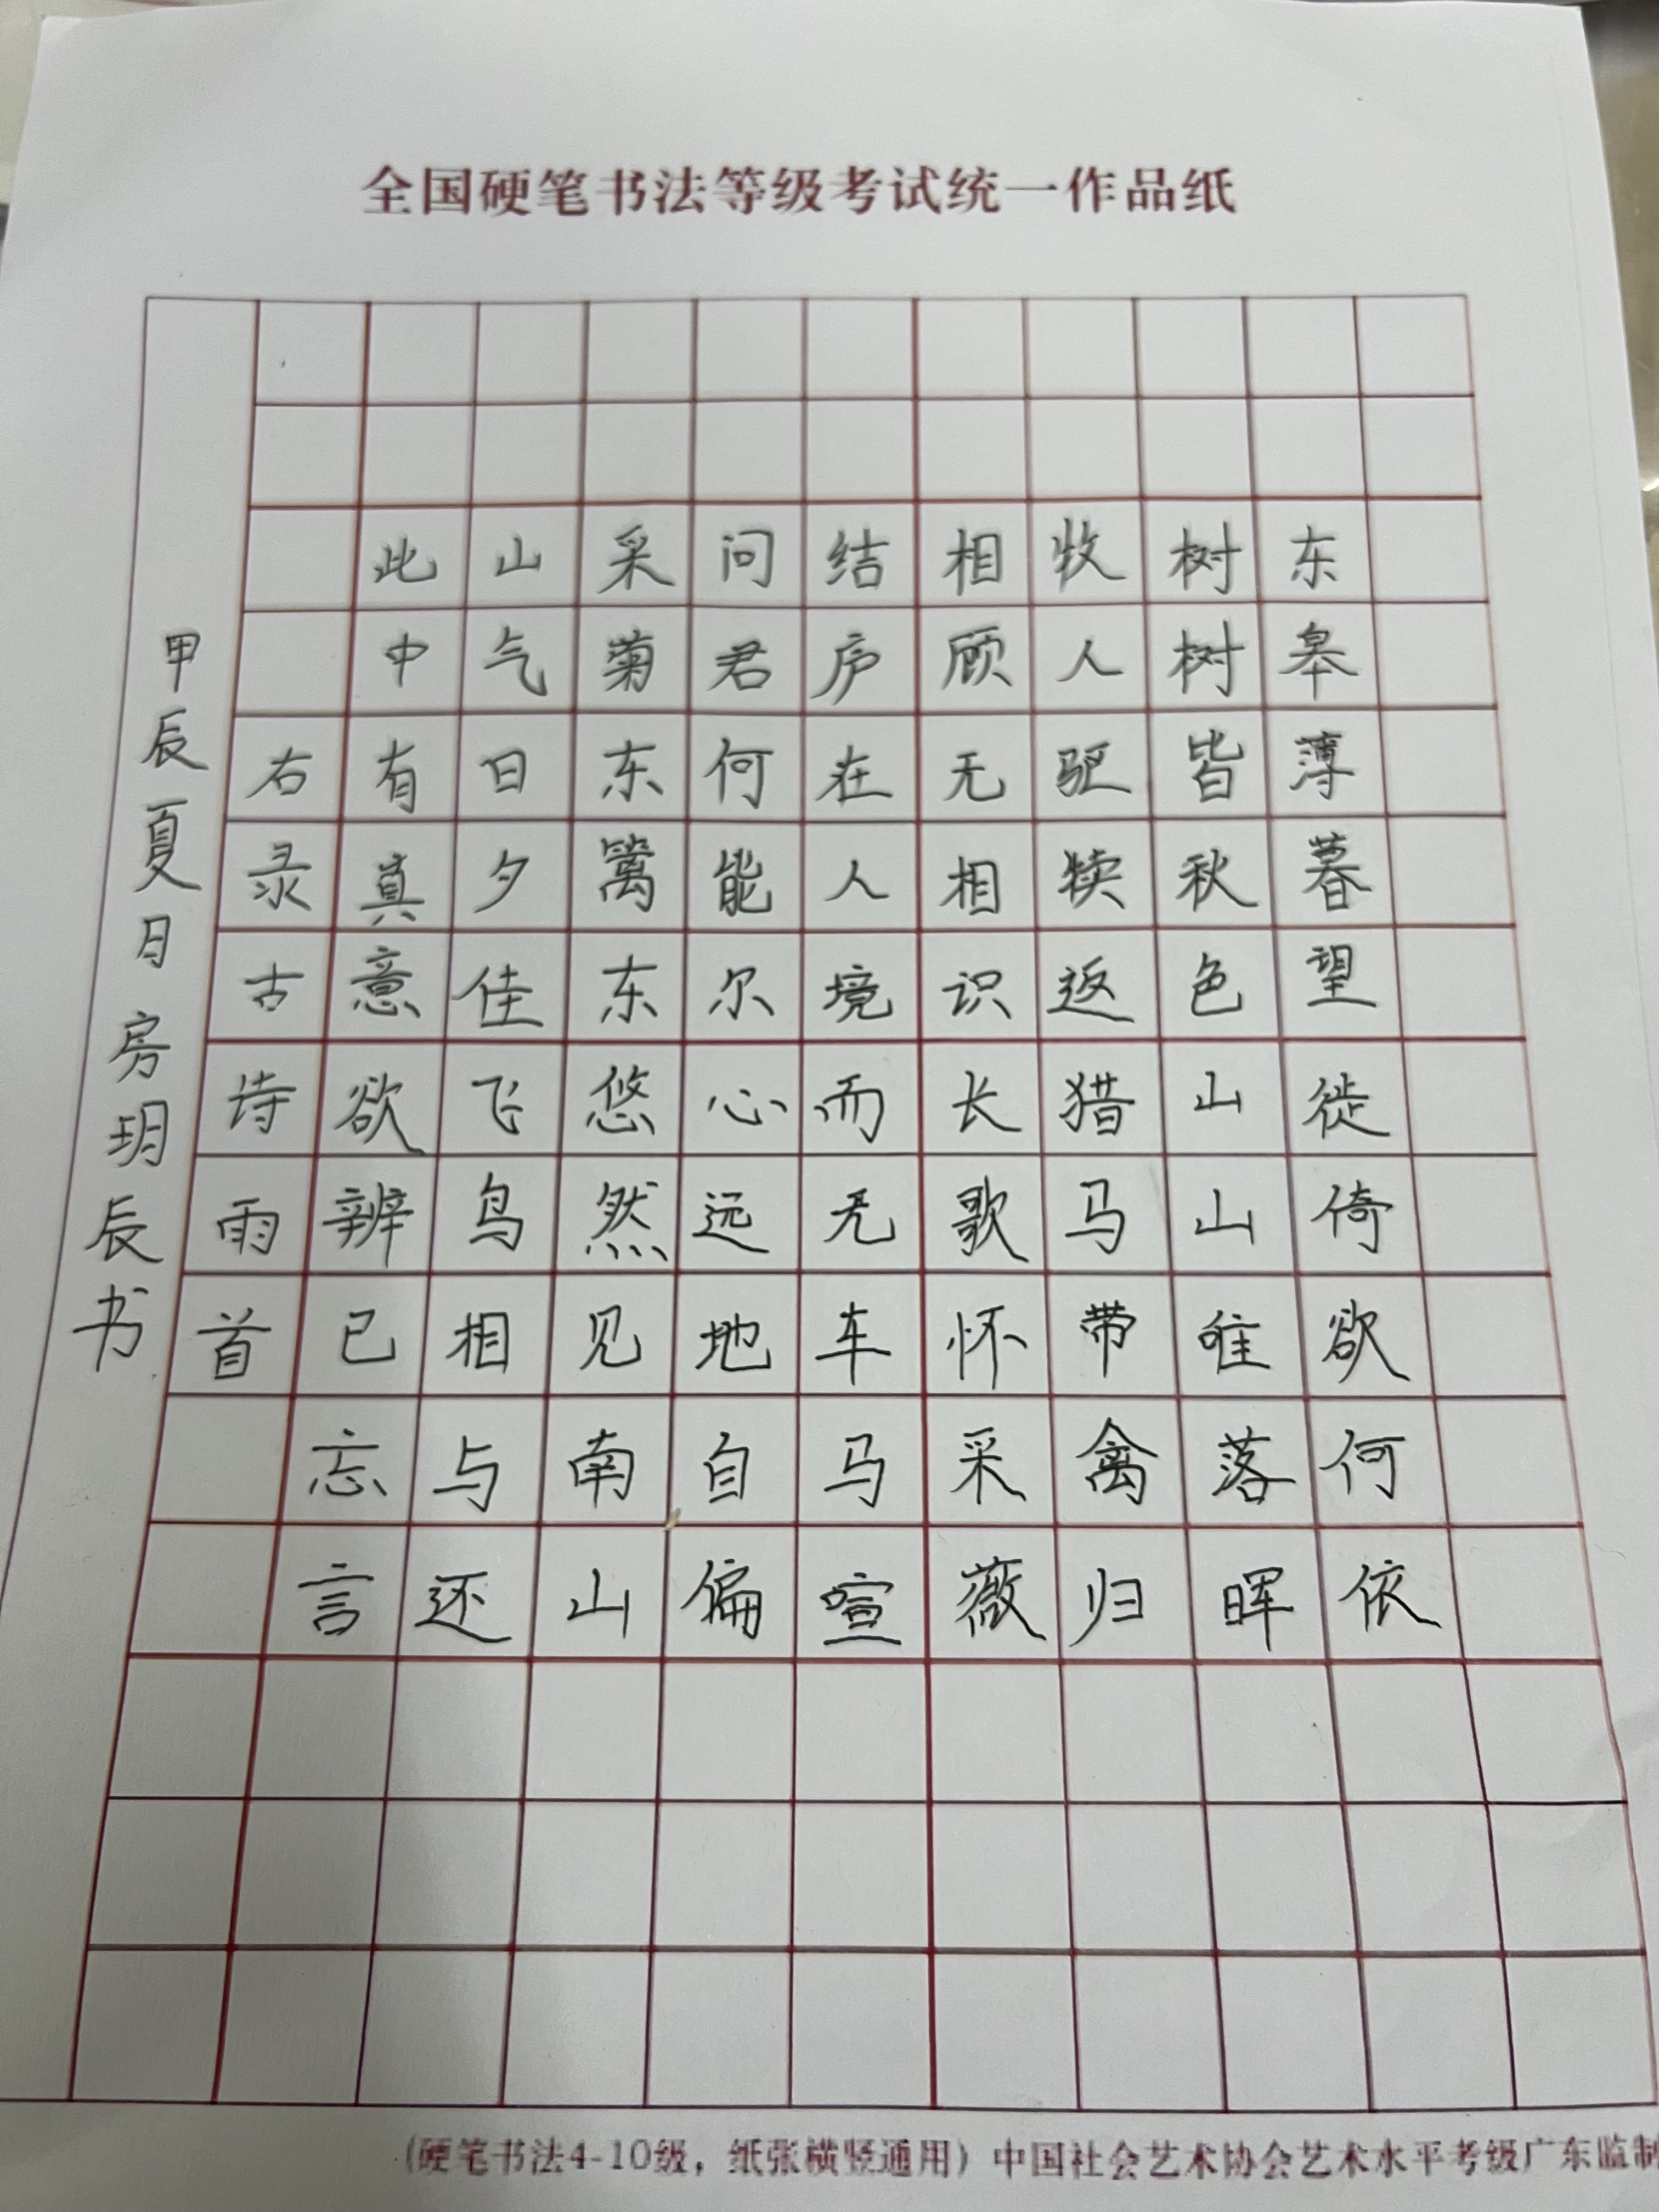 全国硬笔书法等级考试统一作品纸
东皋薄暮望徙倚欲何依
树树皆秋色山山唯落晖
牧人驱犊返猎马带禽归
相顾无相识长歌怀采薇
结庐在人境而无车马喧
问君何能尔心远地自偏
采菊东篱东悠然见南山
山气日夕佳飞鸟相与还
此中有真意欲辨已忘言
右录古诗雨首
甲辰夏日房玥辰书
(硬笔书法4-10级，纸张横竖通用) 中国社会艺术协会艺术水平考级广东监制